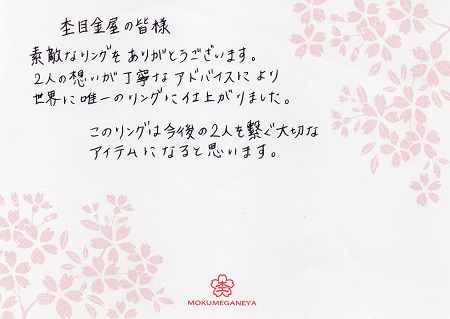 杢目金屋の皆様
素敵なリングをありがとうございます。
2人の想いが丁寧なアドバイスにより
世界に唯一のリングに仕上がりました。
このリングは今後の2人を繋ぐ大切な
アイテムになると思います。
杢
MOKUMEGANEYA